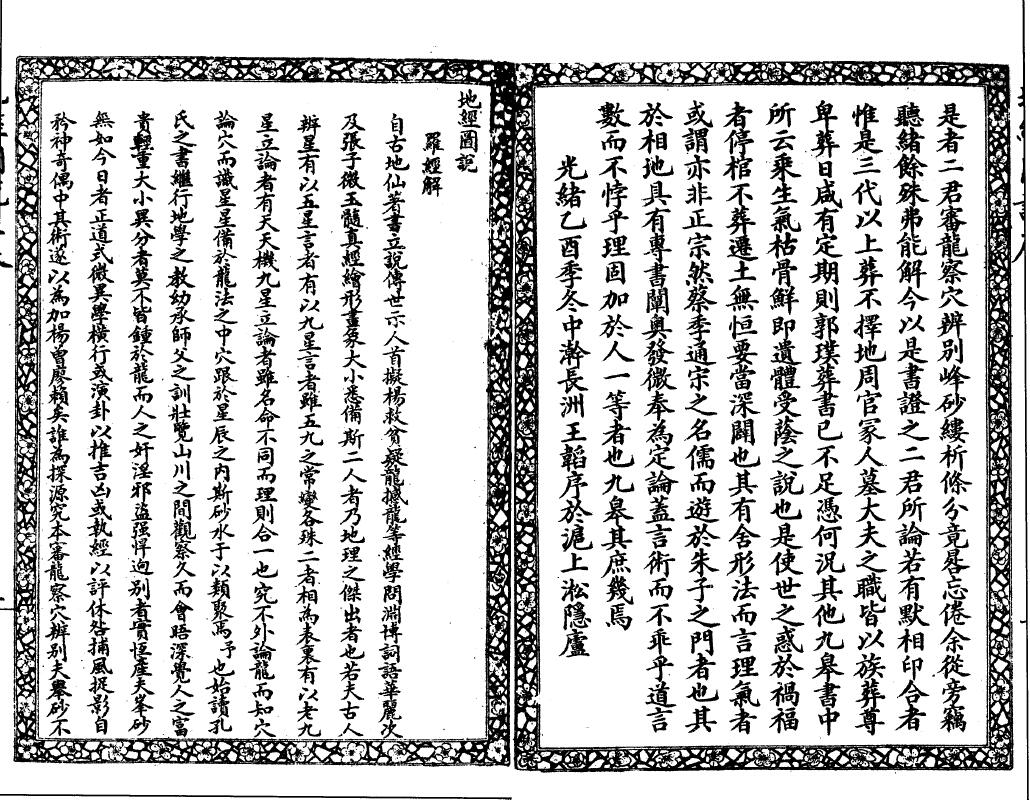 是者二君審龍察穴辨别峰砂縷析條分竟晷忘倦余從旁竊
聽緒餘殊弗能解今以是書證之二君所論若有默相印合者
惟是三代以上葬不擇地周官冢人墓大夫之職皆以族葬尊
卑葬日咸有定期則郭璞葬書已不足憑何況其他九皋書中
所云乘生氣枯骨鮮即遺體受蔭之說也是使世之惑於禍福
者停棺不葬遷土無恒要當深闢也其有舍形法而言理氣者
或謂亦非正宗然蔡季通宗之名儒而遊於朱子之門者也其
於相地具有專書闡奥發微奉為定論蓋言術而不乖乎道言
數而不悖乎理固加於人一等者也九皋其庶幾焉
光緒乙酉季冬中澣長洲王韜序於滬上淞隱廬
地經圖說
羅經解
自古地仙著書立說傳世示人首擬楊救貧疑龍撼龍等經學問淵博詞語華麗次
及張子微玉髓真經繪形畫象大小悉備斯二人者乃地理之傑出者也若夫古人
辨星有以五星言者有以九星言者雖五九之常變各殊二者相為表裏有以老九
星立論者有天天機九星立論者雖名命不同而理則合一也究不外論龍而知穴
論穴而識星星備於龍法之中穴跟於星辰之内斯砂水于以類聚焉予也始讀孔
氏之書繼行地學之教幼承師父之訓壯覽山川之間觀察久而會晤深覺人之富
貴輕重大小異分者莫不皆鍾於龍而人之奸淫邪盜强悍逈别者實恒産夫峯砂
無如今日者正道式微異學橫行或演卦以推吉凶或執經以評休咎捕風捉影自
矜神奇偶中其術遂以為加楊曾廖賴矣誰為探源究本審龍察穴辨别夫巒砂不